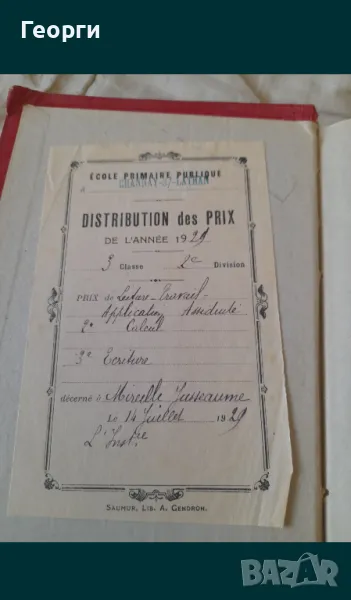 Георги
ÉCOLE PRIMAIRE PUBLIQUE
à
DISTRIBUTION des PRIX
DE L'ANNÉE 1929
3 Classe 2e Division
PRIX de Lecture - Travail -
Application Assiduité
2e Calcul
3e Ecriture
décerné à Mireille Jusseaume
Le 14 Juillet 1929
L'Inst.re
SAUMUR, LIB. A. GENDRON.
BAZAR